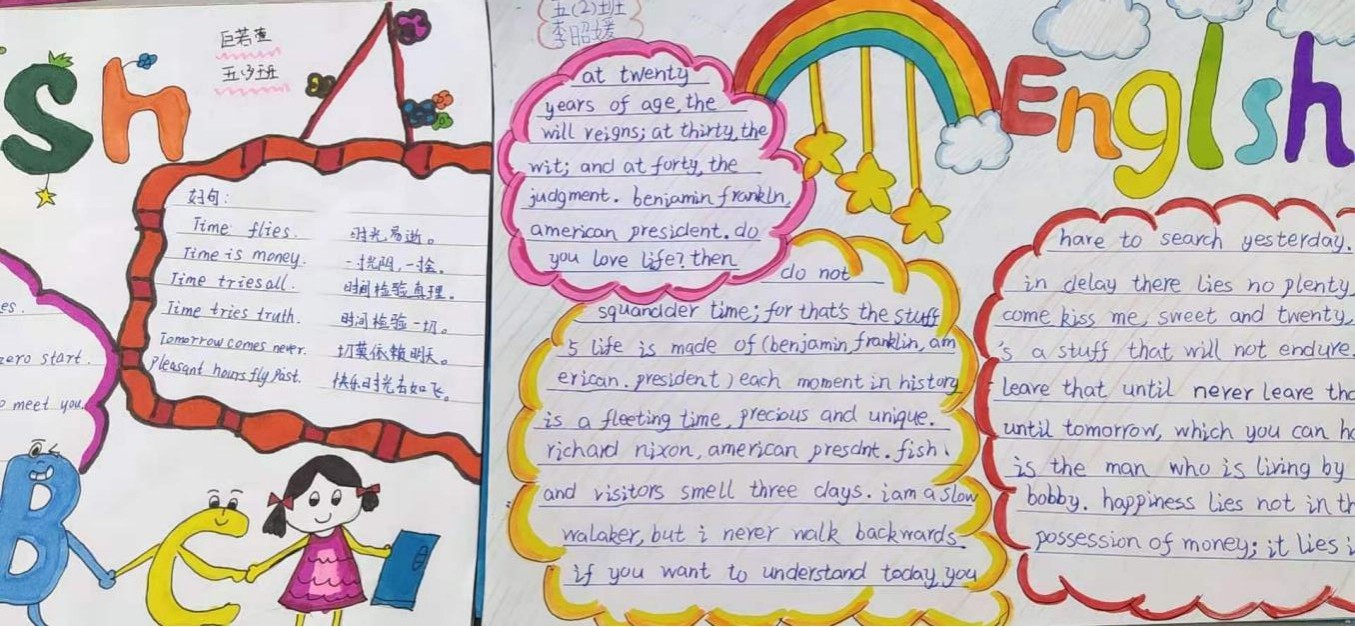 sh
巨若萱
五(3)班
好句:
Time flies. 时光易逝。
Time is money. 一寸光阴,一寸金。
Time tries all. 时间检验真理。
Time tries truth. 时间检验一切。
Tomorrow comes never. 切莫依赖明天。
Pleasant hours fly past. 快乐时光去如飞。
es.
zero start.
o meet you.
B
五(2)班
李昭媛
at twenty
years of age, the
will reigns; at thirty, the
wit; and at forty, the
judgment. benjamin frankln,
american president. do
you love life? then
do not
squandder time; for that's the stuff
life is made of (benjamin franklin, am
erican. president) each moment in history
is a fleeting time, precious and unique.
richard nixon, american presdnt. fish
and visitors smell three days. i am a slow
walaker, but i never walk backwards
if you want to understand today, you
Englsh
hare to search yesterday.
in delay there lies no plenty
come kiss me, sweet and twenty,
's a stuff that will not endure.
leave that until never leave tha
until tomorrow, which you can
is the man who is living by
bobby. happiness lies not in th
possession of money; it lies i